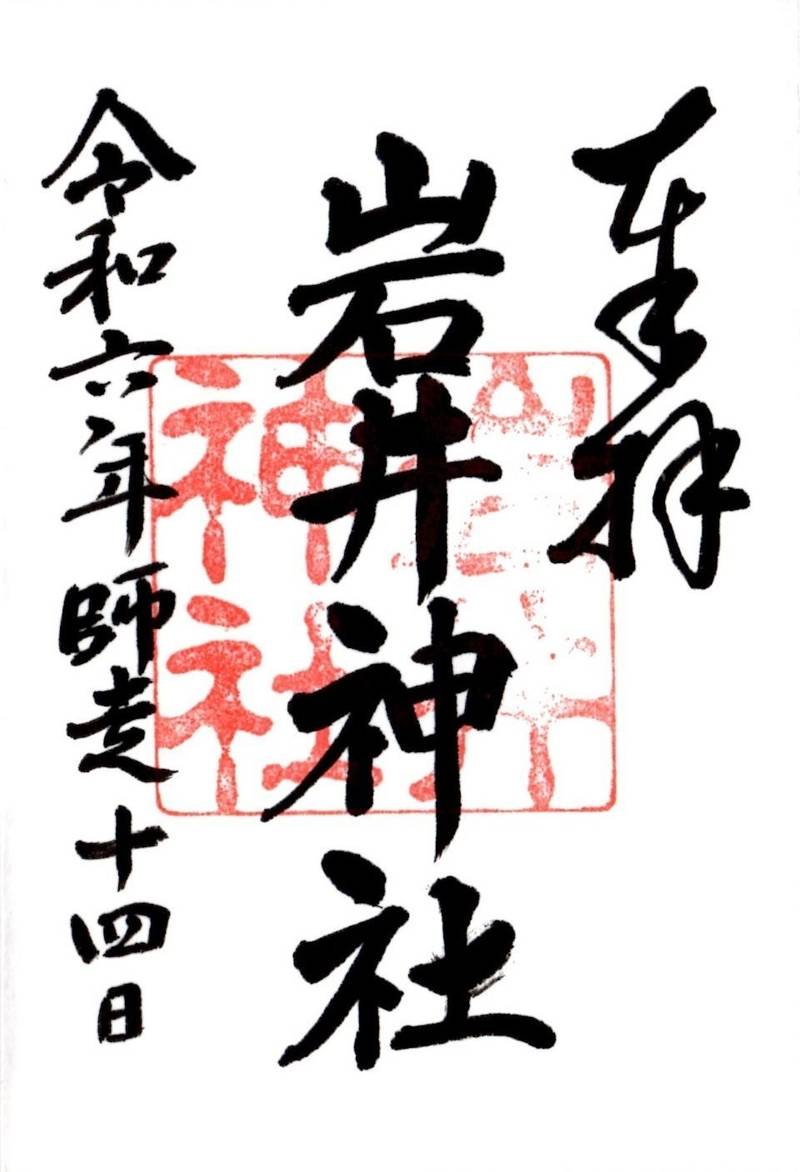 奉拝
岩井神社
令和六年師走十四日
岩井神社